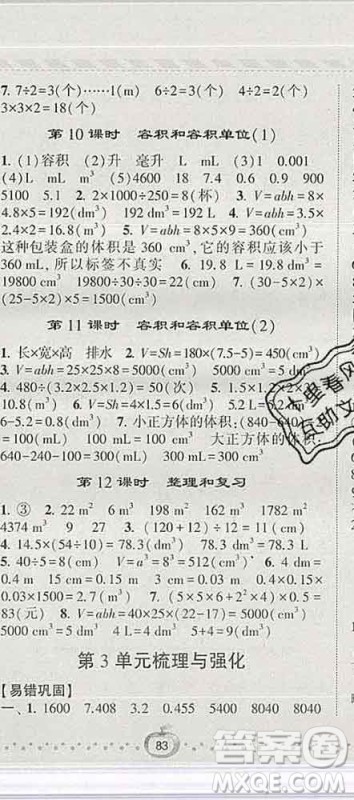 7. 7÷2=3(个)……1(m)　6÷2=3(个)　4÷2=2(个)
3×3×2=18(个)
第 10 课时　容积和容积单位(1)
1. (1)容积　(2)升　毫升　L　mL　(3)1　0.001
(4)L　mL　m³　(5)4600　18　7.4　0.9　0.9　900
5100　5.1　2. 2×1000÷250=8(杯)　3. V=abh=8×
4.8×5=192(dm³)　192 dm³=192 L　4. V=abh=3.5×
2.4×2=16.8(m³)　5. V=abh=8×5×9=360(cm³)
这种包装盒的体积是 360 cm³,它的容积应该小于
360 mL,所以标签不真实　6. 19.8 L=19.8 dm³=
19800 cm³　19800÷(30×22)=30(cm)　7. (30-5×2)
×(25-5×2)×5=1500(cm³)
第 11 课时　容积和容积单位(2)
1. 长×宽×高　排水　2. V=Sh=180×(7.5-5)=450(cm³)
3. V=abh=25×25×8=5000(cm³)　5000 cm³=5000 mL
4. 480÷(3.2×1.5×2)=50(次)　5. V=abh=4×1.5×1.8=
10.8(m³)　6. V=Sh=4×1.5=6(dm³)　5.2 L=5.2 dm³
6-5.2=0.8(dm³)　7. 小正方体的体积:
=100(mL)　100 mL=100 cm³　大正方体的体积:
640-240-100=300(mL)　300 mL=300 cm³
第 12 课时　整理和复习
1. ③　2. 22 m²　2 m²　198 m²　162 m³　1782 m²
4374 m³　9　27　3. (120+12)÷12=11(cm)
4. 14.5×(54÷10)=78.3(m³)　78.3 m³=78.3方
5. 40÷5=8(cm)　V=a³=8³=512(cm³)　6. 2 dm=
0.4 m　0.15×0.4×0.5+0.4×0.5×0.5=0.13(m³)
7. 4×(5×5-2²×2-1²×2)+5×2+5×1+4×2=
83(元)　8. V=abh=40×25×5=5000(cm³)
5000÷(25×25)=8(cm)　5+4=9(cm)
第 3 单元梳理与强化
【易错巩固】
一、1. 1600　7.408　3.2　0.455　5400　8040　8040
83
十里春风
互助文
答案圈
MXQE.COM